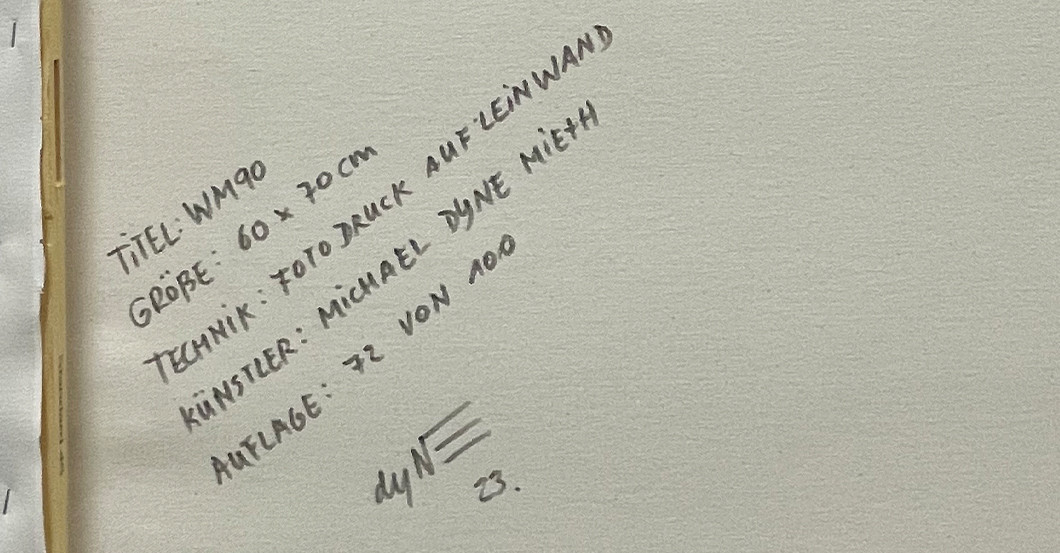 TITEL: WM90
GRÖßE: 60 x 70 cm
TECHNIK: FOTO DRUCK AUF LEINWAND
KÜNSTLER: MICHAEL DYNE MIETH
AUFLAGE: 72 VON 100
dyNE
23.